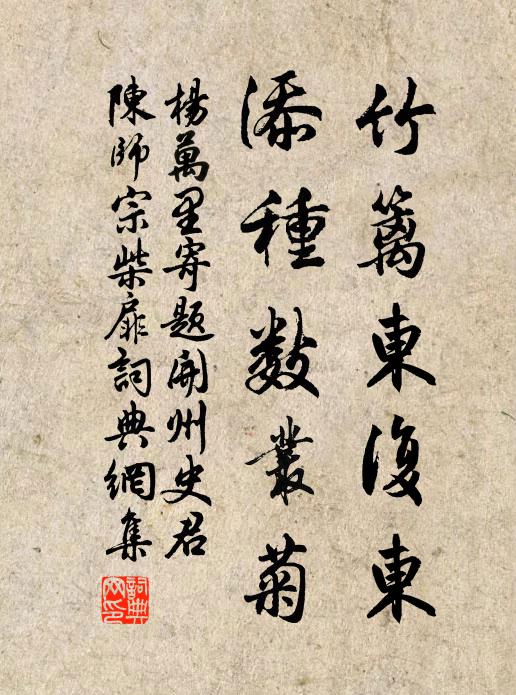 竹籬東復東
添種數叢菊
楊萬里寄題開州史君
陳師宗柴扉詞典網集
詞典
网印